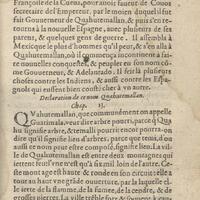 Françoise de la Cueua, pour auoir faueur de Couos
secretaire de l'Empereur, par le moien duquel il fut
fait Gouuerneur de Quahutemallan, & puis s'en re-
tourna à la nouuelle Espagne, auec plusieurs de ses
parens, & quelques gens de guerre. Il assembla à
Mexicque le plus d'hommes qu'il peut, & s'en alla à
Quahutemallan, où il commença incontinent à fai-
re nouuelles conquestes, & peupler en son nom cõ-
me Gouuerneur, & Adelantado. Il feit là plusieurs
choses contre les Indiens, & aussi contre les Espa-
gnols qui eussent bien cousté cher à vn autre.
Declaration de ce nom Quahutemallan.
Chap. 13.
QVahutemallan, que communément on appelle
Guatimala, veut dire arbre pourri, parce q Qua
hu signifie arbre, & temalli pourri: encor pourra-on
dire qu'il signifie lieu d'arbres, parce que temi, dont
aussi il peut estre composé, signifie place. La vil-
le de Quahutemallan est entre deux montagnes qui
iettent feu: l'vne n'est qu'à demi loin de l'autre. Ceste
montagne est haute & ronde en son circuit: elle a
tout au haut vne grãde ouuerture, par laquelle el-
le iette de la flamme, de la fumee, de la cendre, & de
grosses pierres. La ville tremble fort & souuent à cau